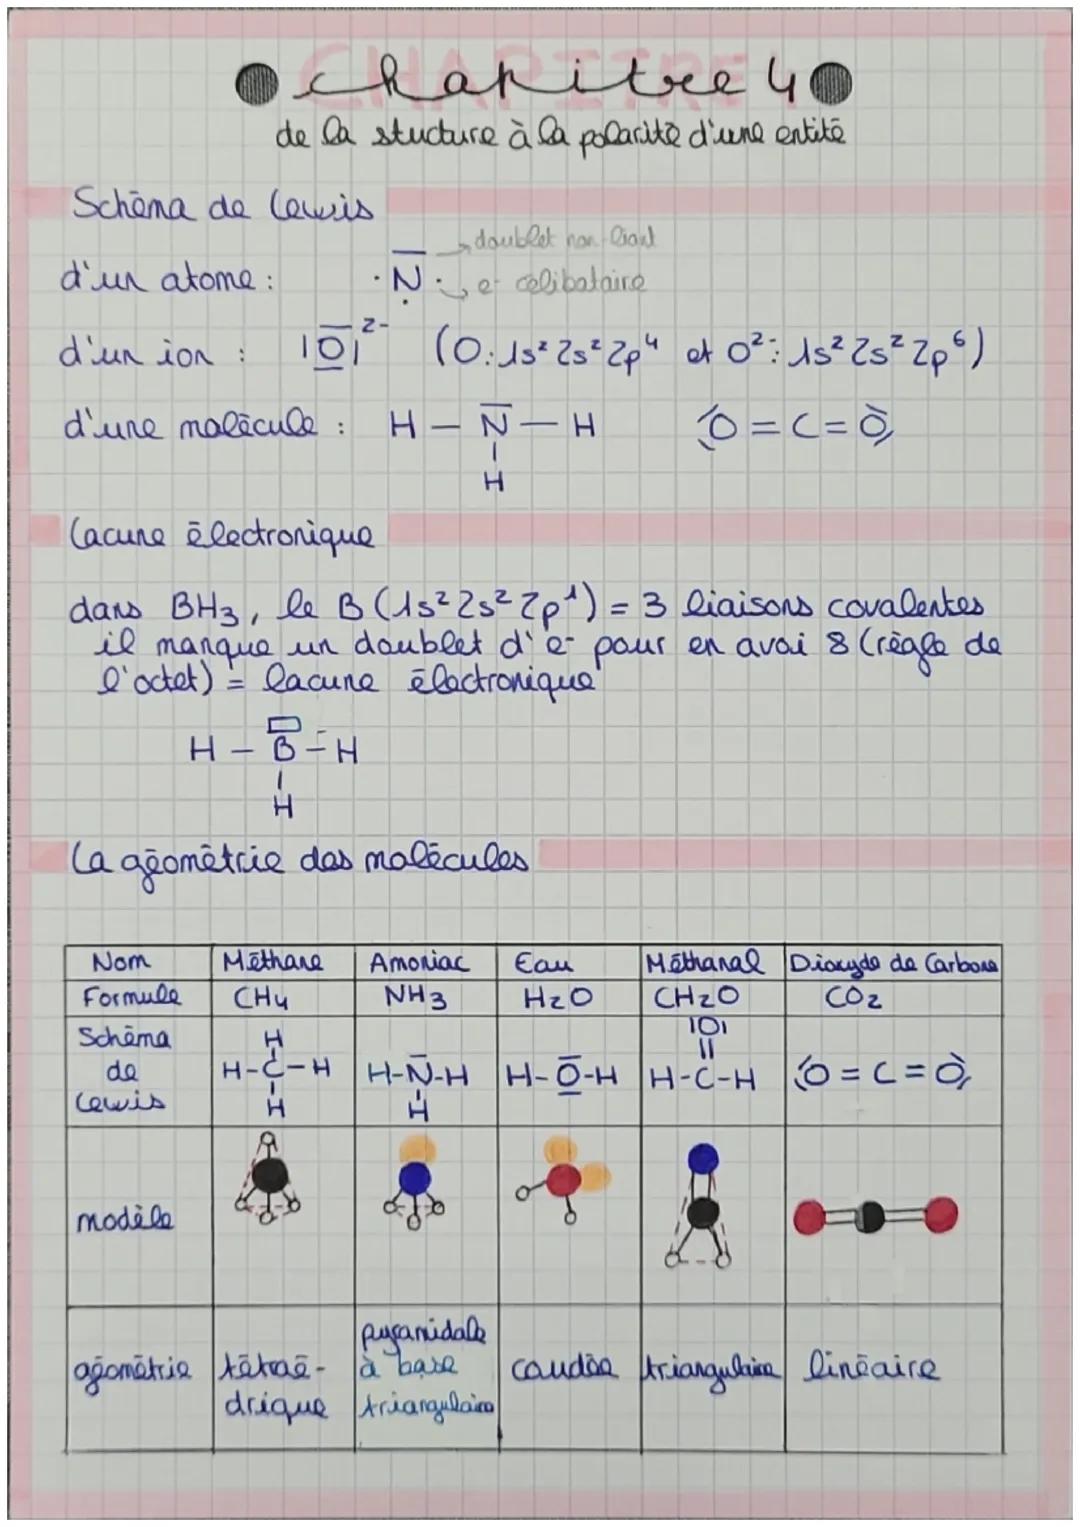 CHAPITRE
chapitre 4
de la stucture à la polarité d'une entité
Schéma de Lewis
d'un atome : · N̅ · doublet non-liant
e- célibataire
d'un ion : |O̲̅|²⁻ (O: 1s² 2s² 2p⁴ et O²⁻: 1s² 2s² 2p⁶)
d'une molécule : H – N̅ – H O = C = O
|
H
Lacune électronique
dans BH3, le B (1s² 2s² 2p¹) = 3 liaisons covalentes
il manque un doublet d'e- pour en avoi 8 (règle de
l'octet) = lacune électronique
H – B – H
|
H
La géométrie des molécules
Nom Méthane Amoniac Eau Méthanal Dioxyde de Carbone
Formule CH4 NH3 H2O CH2O CO2
Schéma H |O|
de H-C-H H-N̅-H H-O̲̅-H H-C-H O = C = O
Lewis H H
modèle
géométrie tétraé- pyramidale coudée triangulaire linéaire
drique à base
triangulaire